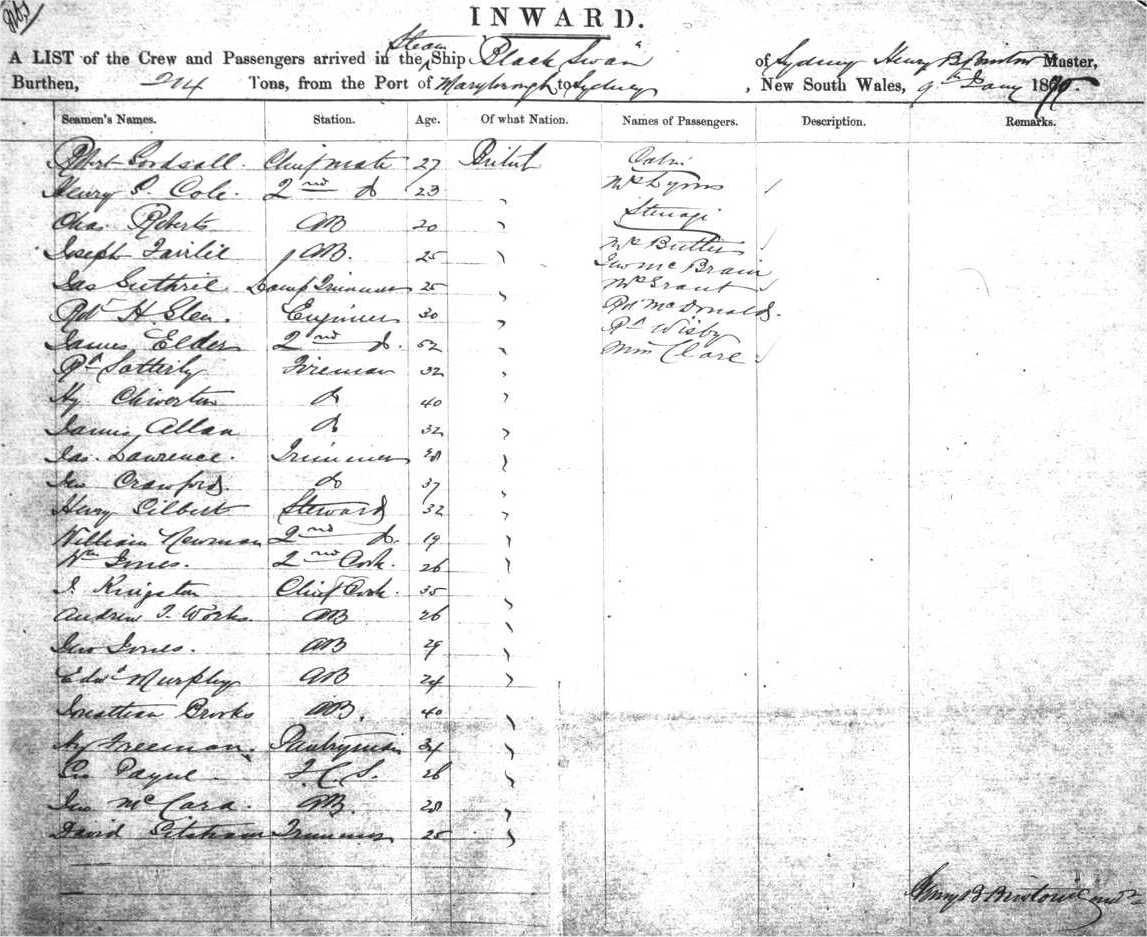 INWARD.
A LIST of the Crew and Passengers arrived in the Steam Ship Black Swan of Sydney Henry B Bristow Master,
Burthen, 204 Tons, from the Port of Maryborough to Sydney, New South Wales, 9th Jany 1870.
Seamen's Names. Station. Age. Of what Nation. Names of Passengers. Description. Remarks.
Robert Godsall Chief Mate 27 British Cabin
Henry S. Cole. 2nd Do 23 " Mr Lyons
Chas. Roberts AB 20 " Steerage
Joseph Fairlie AB. 25 " Mr Butler
Jas Guthrie Lamp Trimmer 25 " Jno McBrain
Mr Grant
Robt H Glen. Engineer 30 " Rd McDonald.
James Elder 2nd Do. 52 " Rd Wisby
Wm Clare
Rd Satterly Fireman 32 "
Hy Chiverton Do 40 "
James Allan Do 32 "
Jas. Lawrence. Trimmer 28 "
Geo Crawford. Do 37 "
Henry Gilbert Steward 32 "
William Newman 2nd Do. 19 "
Wm Jones. 2nd Cook. 26 "
J. Kingston Chief Cook. 35 "
Andrew J. Works. AB 26 "
Jno Jones. AB 29 "
Edwd Murphy AB 24 "
Jonathan Brooks AB. 40 "
Hy Freeman. Pantryman 34 "
Payne F.C.S. 26 "
Jno McCara. AB. 28 "
David Trimmer 25 "
Henry B Bristow